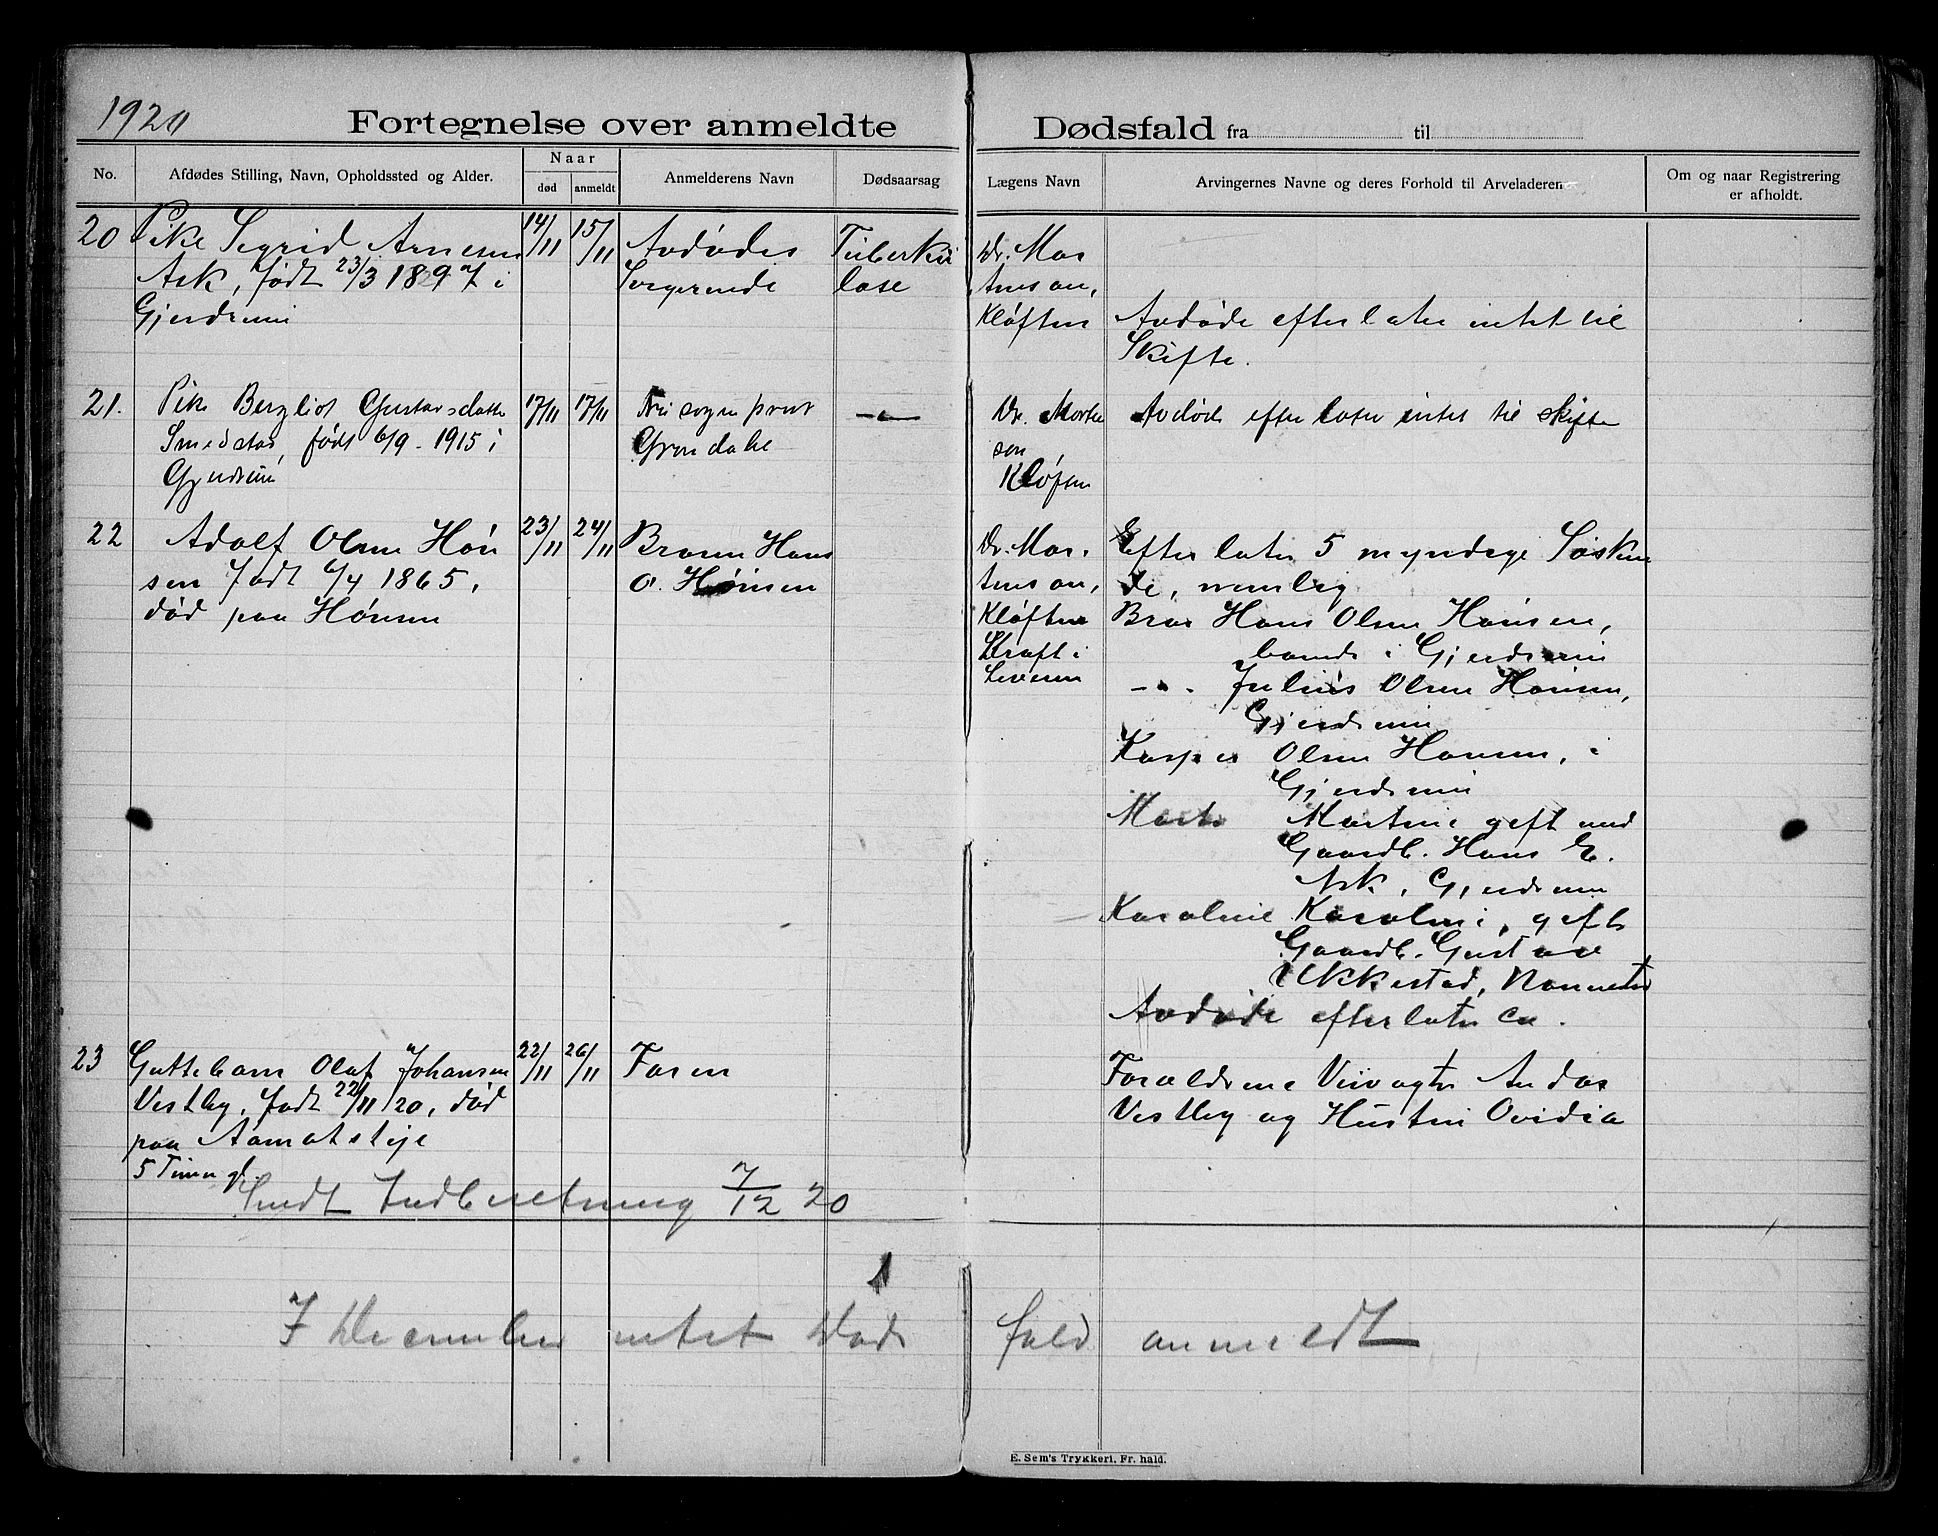 1920
Fortegnelse over anmeldte Dødsfald fra til
No.
Afdødes Stilling, Navn, Opholdssted og Alder.
Naar
død
anmeldt
Anmelderens Navn
Dødsaarsag
Lægens Navn
Arvingernes Navne og deres Forhold til Arveladeren
Om og naar Registrering
er afholdt.
20 Pike Sigrid Arnesen
Ask, født 23/3 1897 i
Gjerdrum
14/11
15/11
Avdødes
Tuberku
lose
Dr. Mor
tenson,
Kløften
Avdøde efterlater intet til
Skifte.
21. Pike Bergliot Gustavsdatter
Smedstad, født 6/9 - 1915 i
Gjerdrum
17/11
17/11
sogneprest
Grøndahl
Dr. Morten
son
Kløften
Avdøde efterlater intet til skifte
22 Adolf Olsen Høn
sen født 6/4 1865,
død paa Hønsen
23/11
24/11
Broren Hans
O. Hønsen
Dr. Mor.
tenson,
Kløften
Kræft i
Leveren
Efterlater 5 myndige Søsken
de, nemlig
Bror Hans Olsen Hønsen,
i Gjerdrum
- " - Julius Olsen Hønsen,
Gjerdrum
Kasper Olsen Hønsen, i
Gjerdrum
Marte Martine gift med
Gaardb. Hans E.
Ask, Gjerdrum
Karoline Karoline, gift
Gaardb. Gustav
Ukkestad, Nannestad
Avdøde efterlater ca.
23 Guttebarn Olaf Johansen
Vestby, født 22/11 20, død
paa
5 Timer gl.
22/11
26/11
Faren
Forældrene
Vestby og Hustru Ovidia
Sendt Indberetning 7/12 20
I December intet Døds fald anmeldt
E. Sem's Trykkeri, Fr. hald.